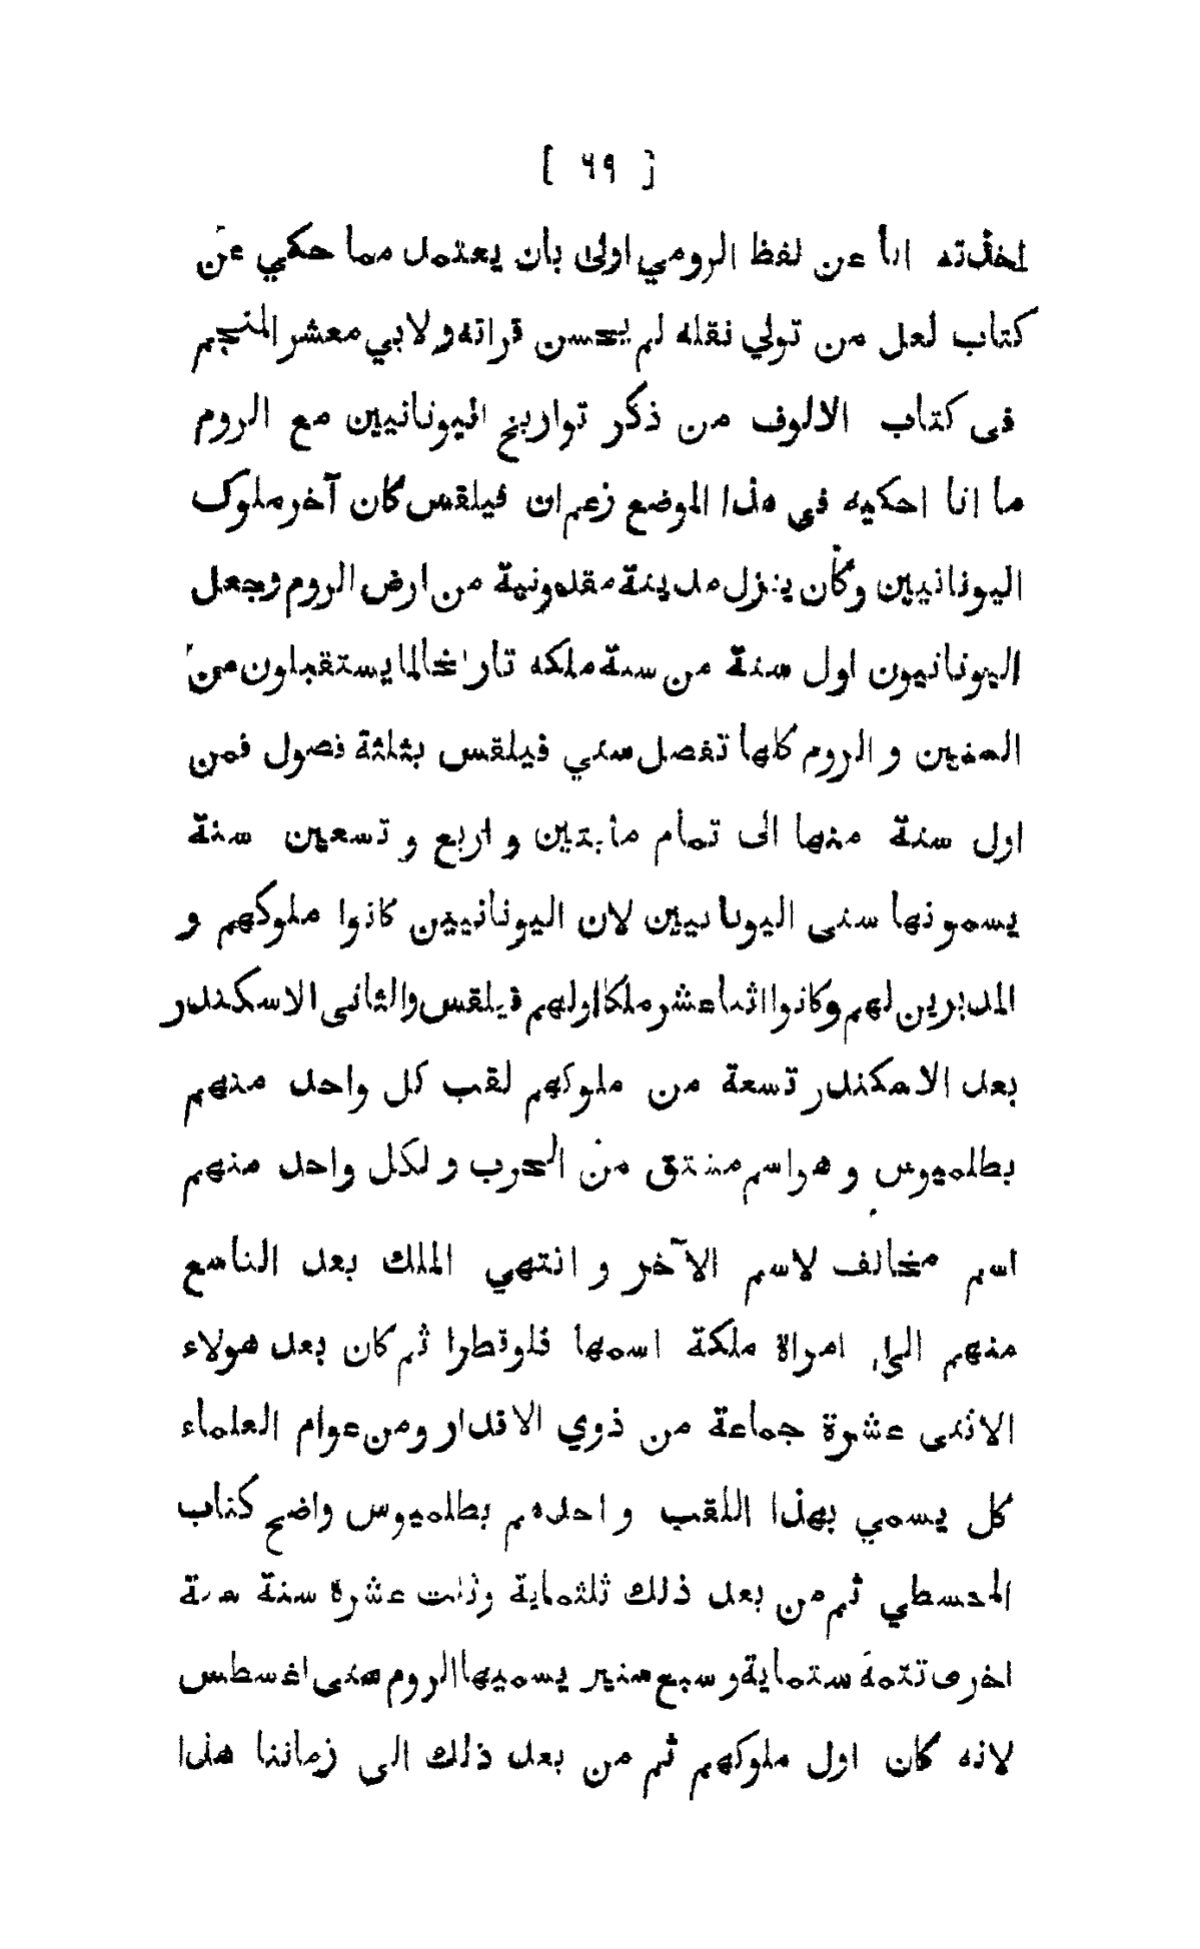 [ ٦٩ ]
اخذته انا عن لفظ الرومي اولى بان يعتمل مما حكي عن
كتاب لعل من تولي نقله لم يحسن قراته ولابي معشر المنجم
فى كتاب الالوف من ذكر تواريخ اليونانيين مع الروم
ما انا احكيه فى هذا الموضع زعم ان فيلقس كان آخر ملوك
اليونانيين وكان ينزل مدينة مقدونية من ارض الروم وجعل
اليونانيون اول سنة من سنة ملكه تاريخا لما يستقبلون من
السنين و الروم كلها تفصل سني فيلقس بثلثة فصول فمن
اول سنة منها الى تمام مايتين و اربع و تسعين سنة
يسمونها سنى اليونانيين لان اليونانيين كانوا ملوكهم و
المدبرين لهم وكانوا اثنا عشر ملكا اولهم فيلقس والثانى الاسكندر
بعد الاسكندر تسعة من ملوكهم لقب كل واحد منهم
بطلميوس و هو اسم مشتق من الحرب و لكل واحد منهم
اسم مخالف لاسم الآخر و انتهي الملك بعد التاسع
منهم الى امراة ملكة اسمها قلوقطرا ثم كان بعد هولاء
الاثنى عشرة جماعة من ذوي الاقدار ومن عوام العلماء
كل يسمي بهذا اللقب و احدهم بطلميوس واضح كتاب
المجسطي ثم من بعد ذلك ثلثماية وثلث عشرة سنة
اخرى تتمة ستماية و سبع سنين يسميها الروم سنى اغسطس
لانه كان اول ملوكهم ثم من بعد ذلك الى زماننا هذا